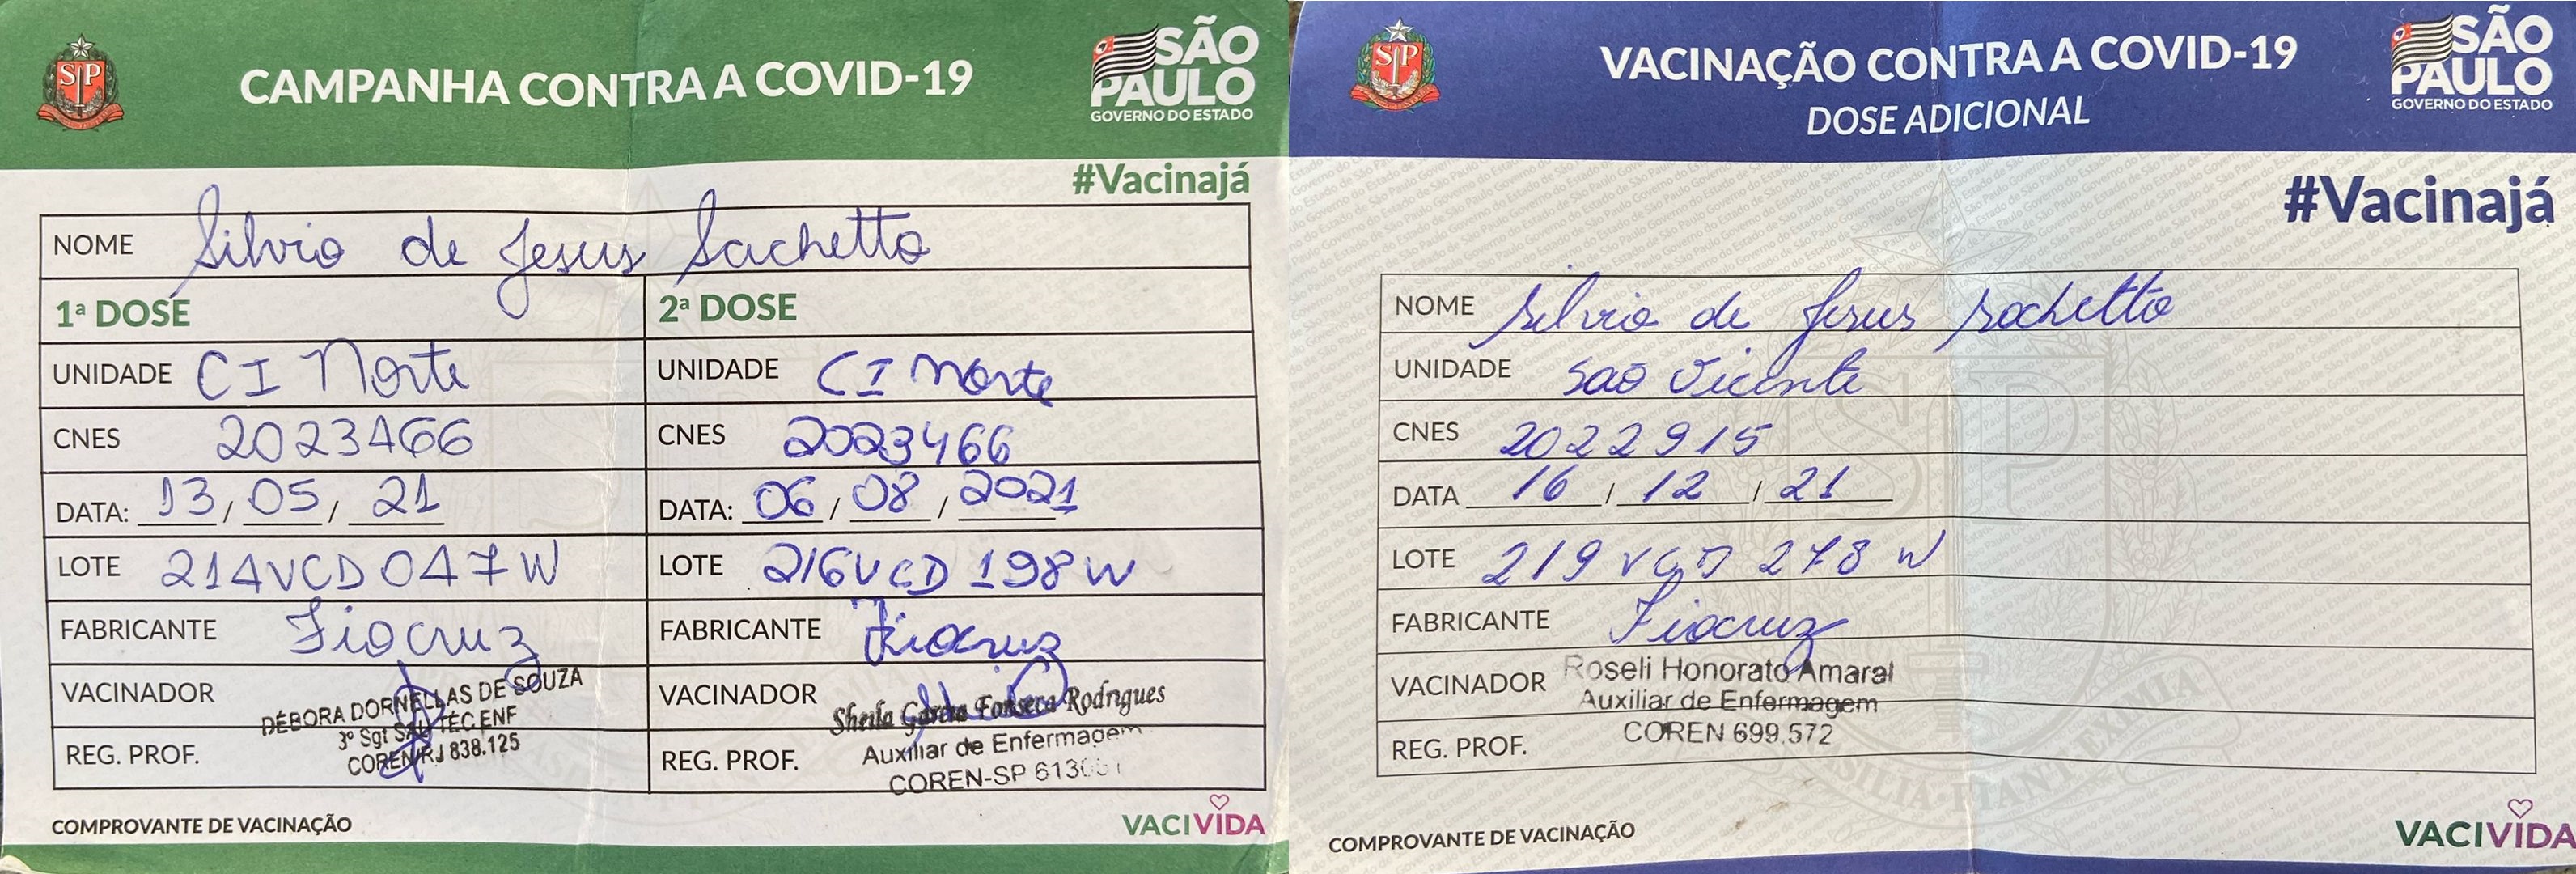 CAMPANHA CONTRA A COVID-19
SÃO
PAULO
GOVERNO DO ESTADO
#Vacinajá
NOME Silvio de Jesus Sachetto
1ª DOSE
UNIDADE CI Norte
CNES 2023466
DATA: 13/05/21
LOTE 214VCD047W
FABRICANTE Fiocruz
VACINADOR DÉBORA DORNELLAS DE SOUZA
3º Sgt SAU TÉC.ENF
REG. PROF. COREN/RJ 838.125
2ª DOSE
UNIDADE CI Norte
CNES 2023466
DATA: 06/08/2021
LOTE 216VCD198W
FABRICANTE Fiocruz
VACINADOR Sheila Garcia Fonseca Rodrigues
Auxiliar de Enfermagem
REG. PROF. COREN-SP
COMPROVANTE DE VACINAÇÃO
VACIVIDA
VACINAÇÃO CONTRA A COVID-19
DOSE ADICIONAL
SÃO
PAULO
GOVERNO DO ESTADO
#Vacinajá
NOME Silvio de Jesus Sachetto
UNIDADE São Vicente
CNES 2022915
DATA 16/12/21
LOTE 219VCD278W
FABRICANTE Fiocruz
VACINADOR Roseli Honorato Amaral
Auxiliar de Enfermagem
REG. PROF. COREN 699.572
COMPROVANTE DE VACINAÇÃO
VACIVIDA